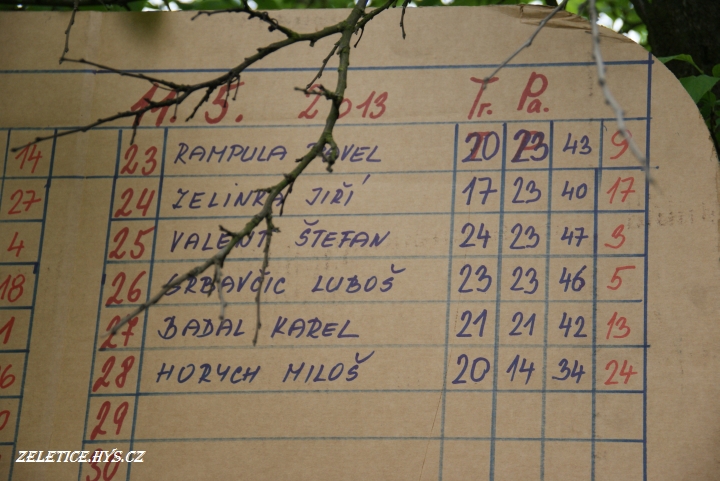 11. 5. 2013 Tr. Pa.
14 23 RAMPULA PAVEL 20 23 43 9
27 24 ZELINKA JIŘÍ 17 23 40 17
4 25 VALENT ŠTEFAN 24 23 47 3
18 26 GRBAVČIC LUBOŠ 23 23 46 5
1 27 BADAL KAREL 21 21 42 13
6 28 HORYCH MILOŠ 20 14 34 24
29
30
ZELETICE.HYS.CZ